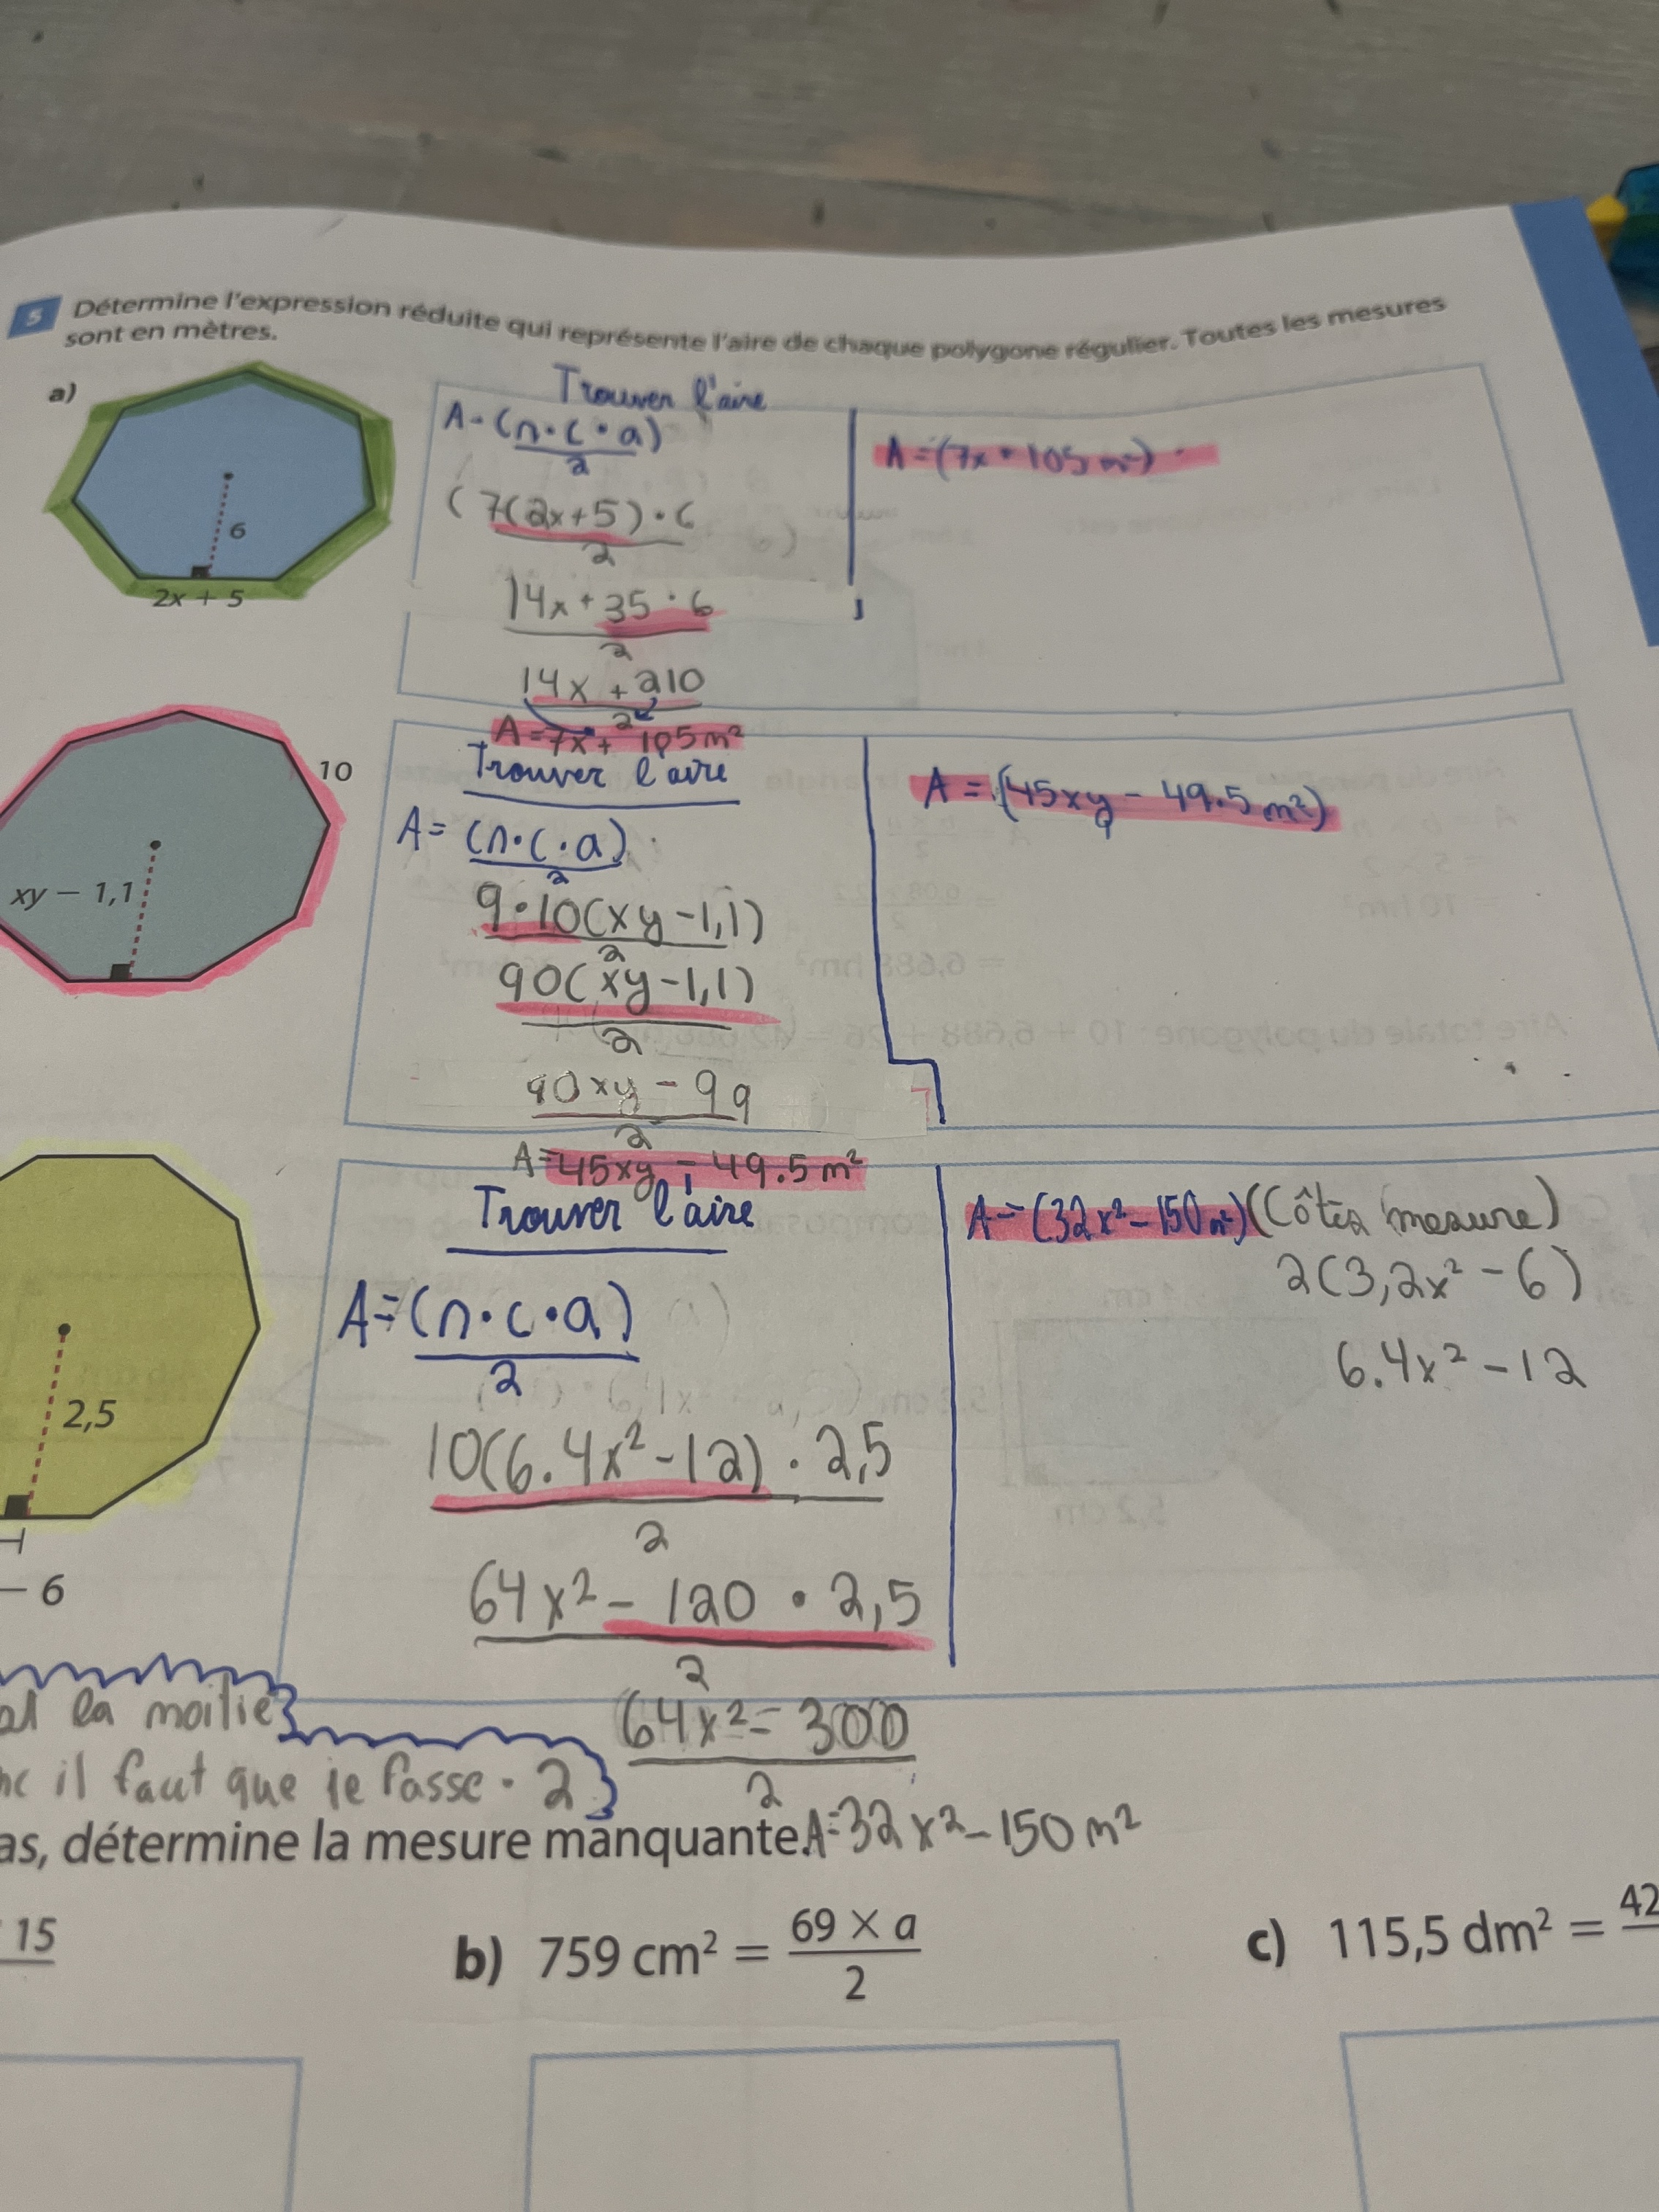 5 Détermine l'expression réduite qui représente l'aire de chaque polygone régulier. Toutes les mesures
sont en mètres.
a)
6
2x + 5
Trouver l'aire
A = (n·c·a)
2
(7(2x+5)·6
2
14x+35·6
2
14x + 210
2
A=7x+ 105m²
A=(7x+105m²)
10
xy − 1,1
Trouver l'aire
A= (n·c·a)
2
9·10(xy-1,1)
2
90(xy-1,1)
2
90xy - 99
2
A=45xy - 49.5m²
A = (45xy - 49.5m²)
2,5
− 6
Trouver l'aire
A=(n·c·a)
2
10(6.4x²-12)·2,5
2
64x²- 120 · 2,5
2
64x²- 300
2
A=32x²-150m²
A=(32x²-150m²)(Côtés mesure)
2(3,2x²-6)
6.4x²-12
la moitié
il faut que je fasse · 2
as, détermine la mesure manquante.
15
b) 759 cm² = 69 × a
2
c) 115,5 dm² = 42